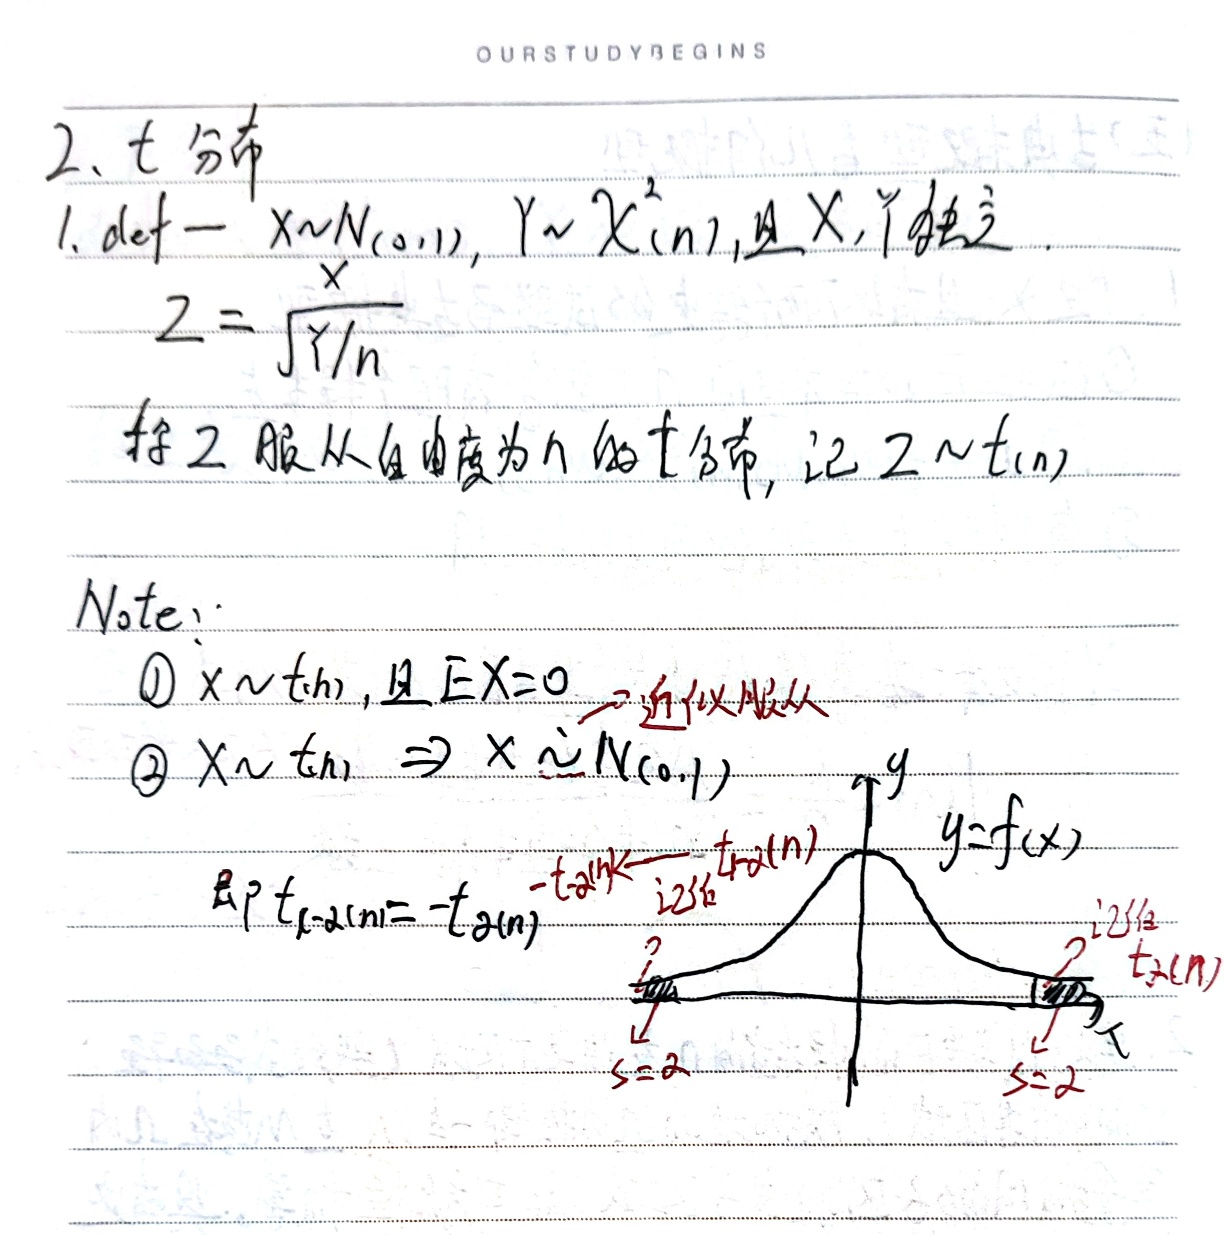 OURSTUDYBEGINS
2、t 分布
1. def — X~N(0,1), Y~χ²(n),且 X,Y独立.
Z = X/√(Y/n)
称Z服从自由度为n的t分布,记Z~t(n)
Note:
① X~t(n),且EX=0
近似服从
② X~t(n) ⇒ X ~̇ N(0,1)
y
y=f(x)
-tα(n) ← t1-α(n)
记作
即 t1-α(n)= -tα(n)
记作
tα(n)
x
S=α
S=α